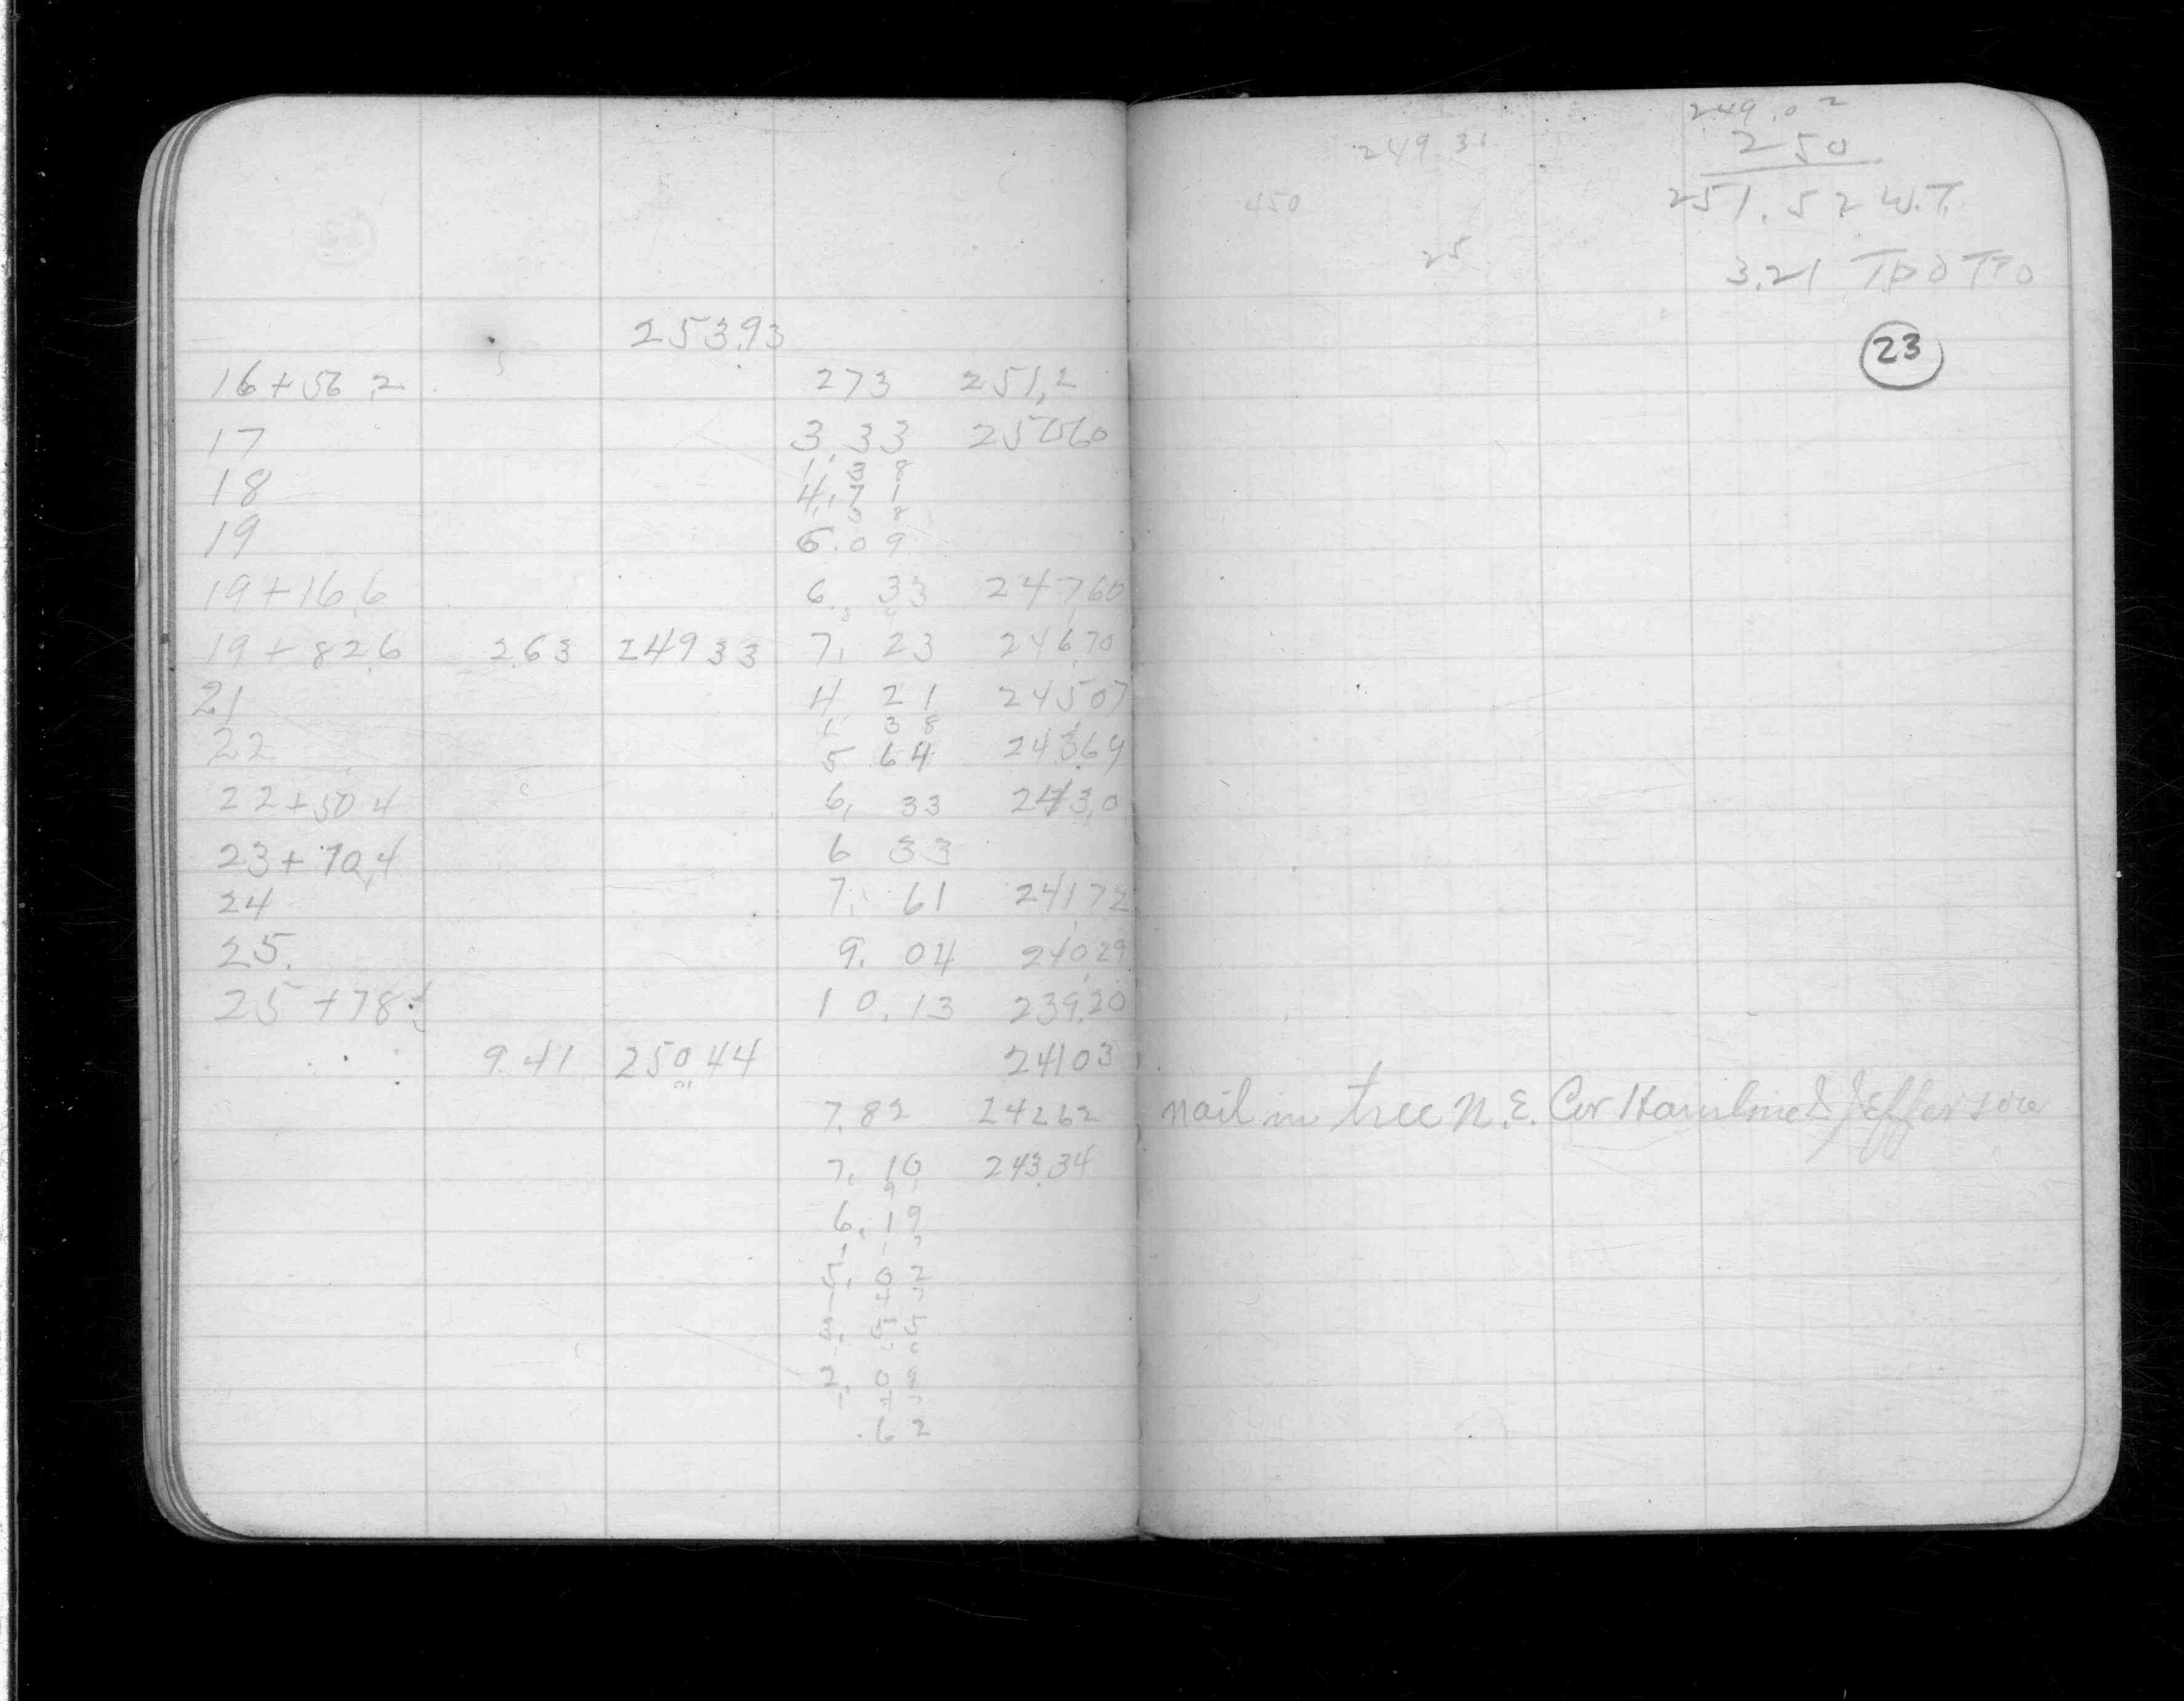 253.93
16+56.2 273 251,2
17 3.33 25060
1.38
18 4.71
19 6.09
19+16.6 6. 33 24760
19+82.6 2.63 24933 7. 23 246.70
21 4 21 245.07
1 38
22 5 64 243.69
22+50.4 6, 33 243,0
23+70.4 6 33
24 7. 61 24172
25. 9. 04 24029
25+78. 10.13 239.20
9.41 25044 24103
7.82 24262
7. 10 243.34
6.19
5.02
3.55
2.09
.62
249.02
249 31
250
450
251.52 W.T.
25
3.21
23
nail in tree N.E. Cor Hamline & Jefferson